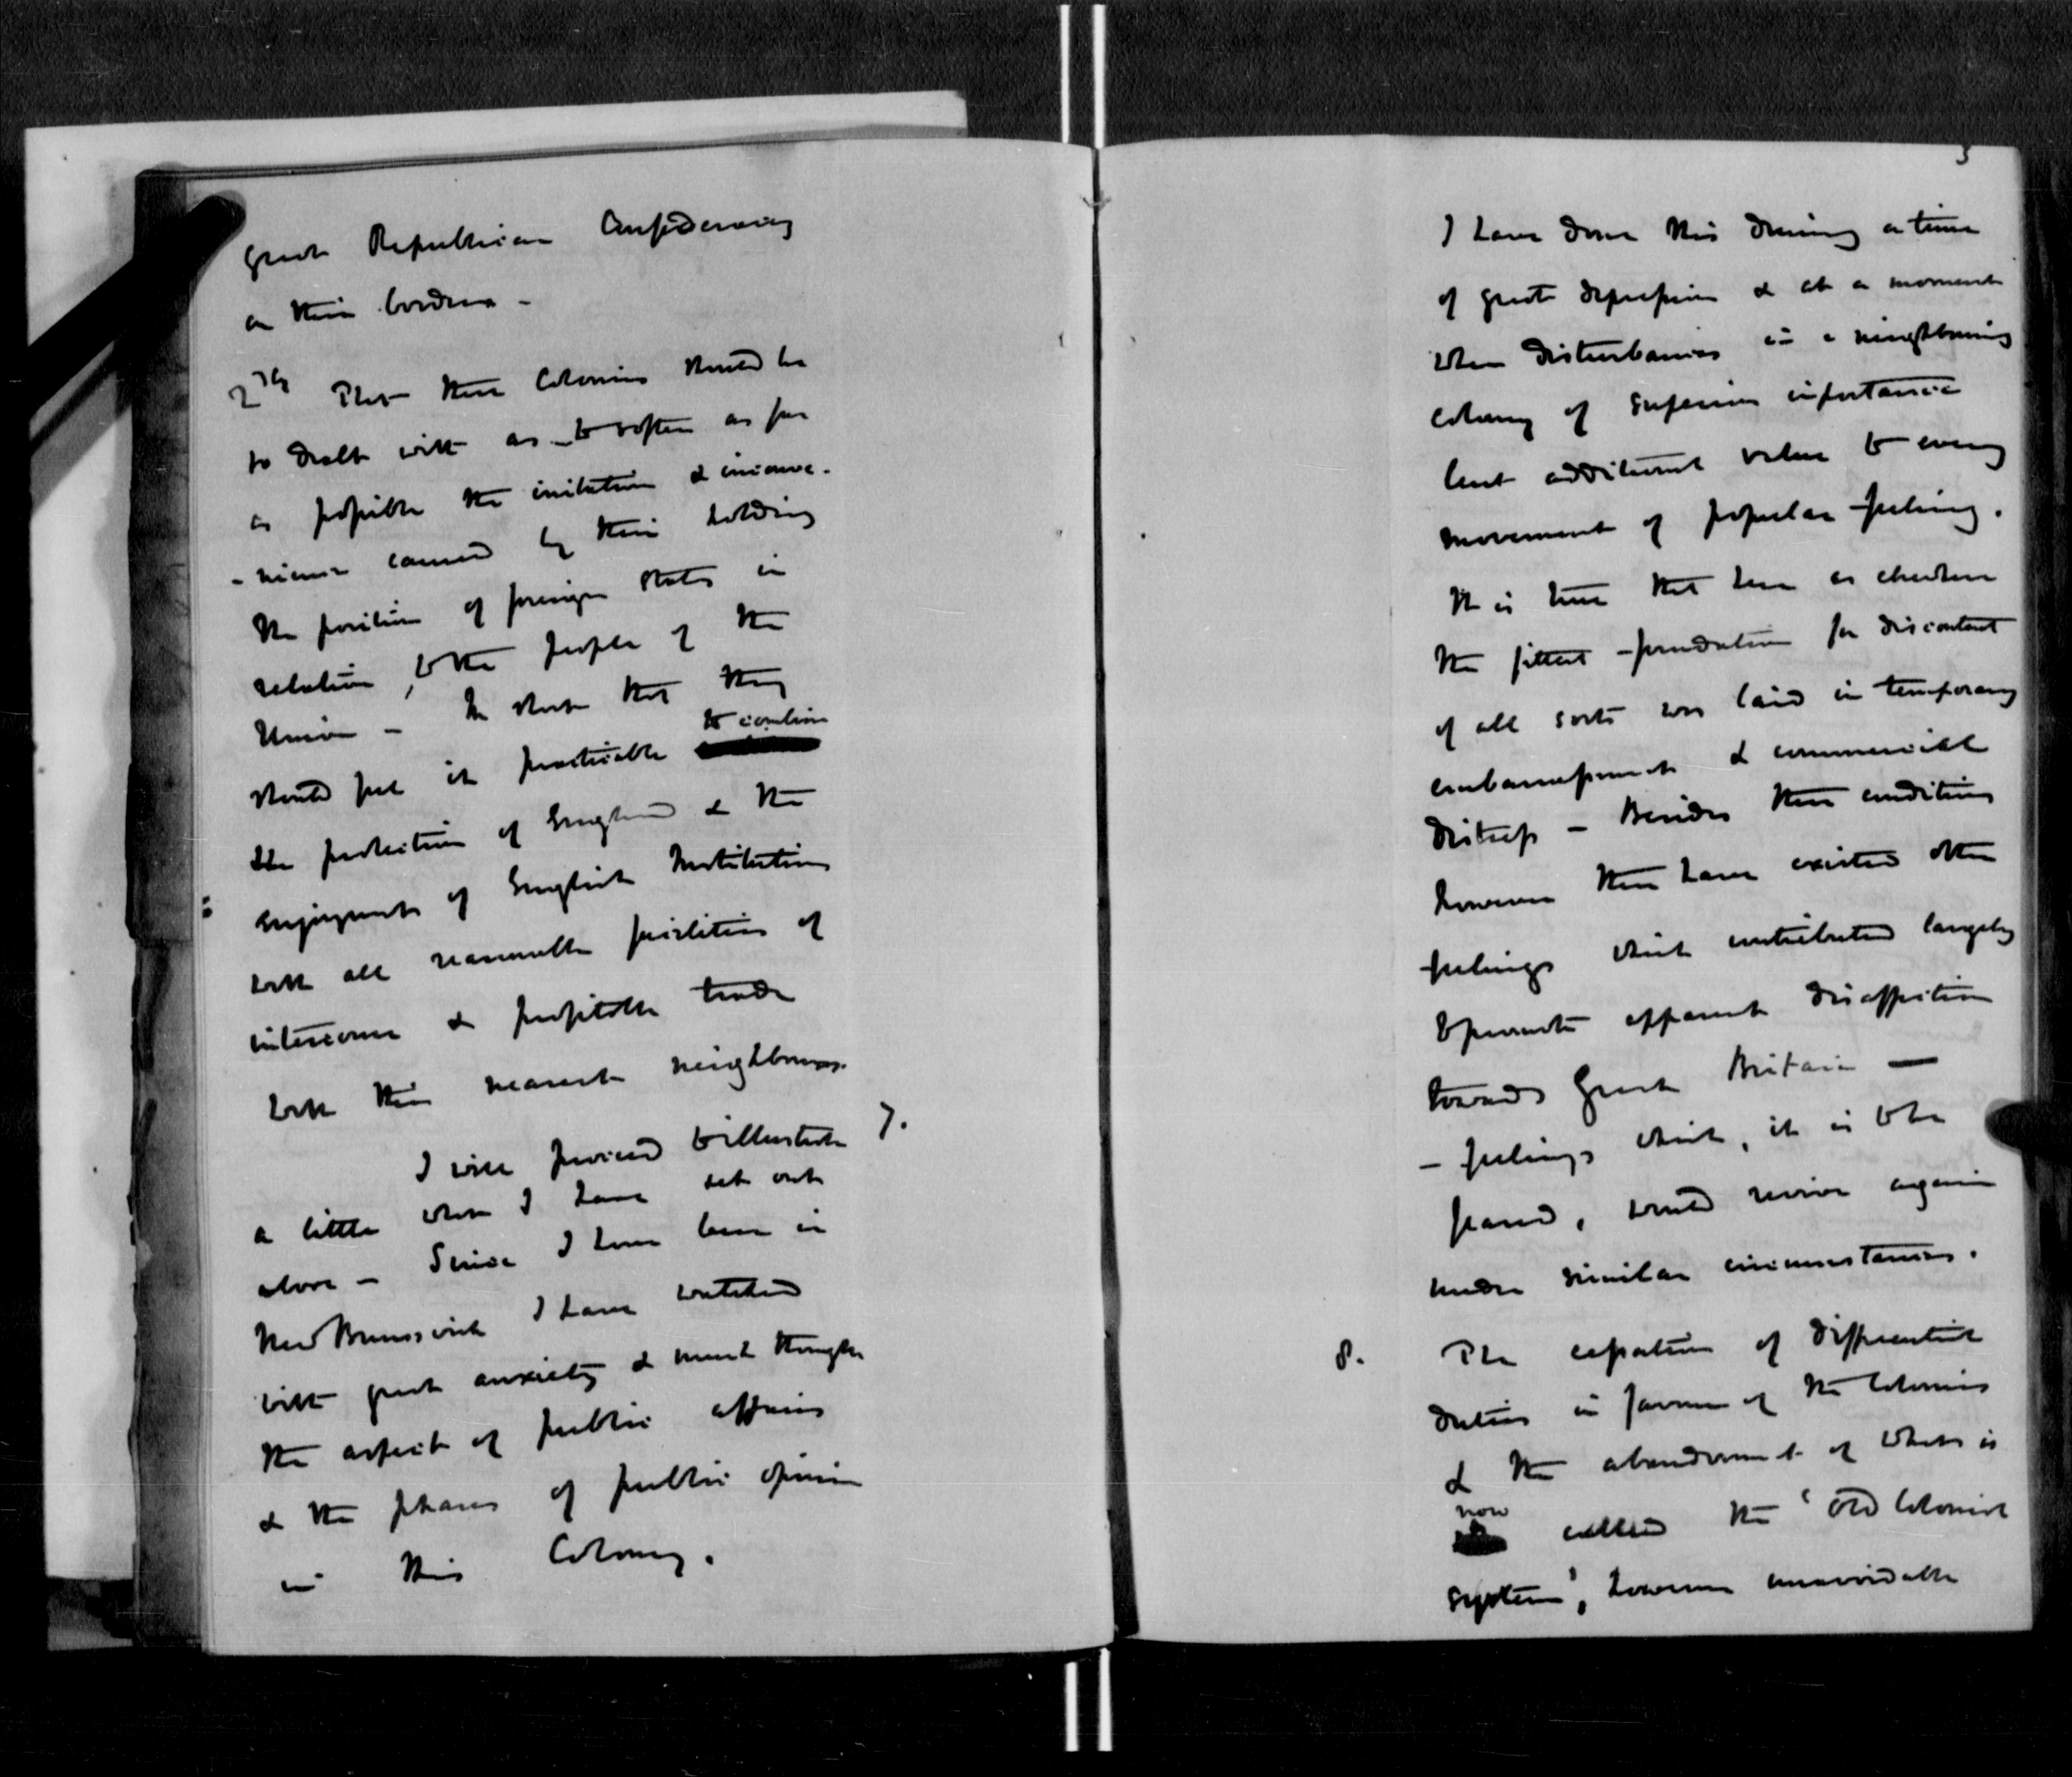 great Republican Confederacy
on their borders -
2dly That these Colonies should be
so dealt with as to soften as far
as possible the irritation & inconve-
-nience caused by their holding
the position of foreign States in
relation, to the people of the
Union - In short that they
should feel it practicable to combine
the protection of England & the
enjoyment of English Institutions
with all reasonable facilities of
intercourse & profitable trade
with their nearest neighbours.
I will proceed to illustrate 7.
a little what I have set out
above - Since I have been in
New Brunswick I have watched
with great anxiety & much thought
the aspect of public affairs
& the phases of public opinion
in this Colony.
3
I have done this during a time
of great depression & at a moment
when disturbances in a neighbouring
colony of superior importance
lent additional value to every
movement of popular feeling.
It is true that here as elsewhere
the fittest foundation for discontent
of all sorts was laid in temporary
embarrassment & commercial
distress - Besides these conditions
however there have existed other
feelings which contributed largely
to promote apparent disaffection
towards Great Britain -
- feelings which, it is to be
feared, would revive again
under similar circumstances.
8. The cessation of differential
duties in favour of the Colonies
& the abandonment of what is
now called the 'Old Colonial
system', however unavoidable